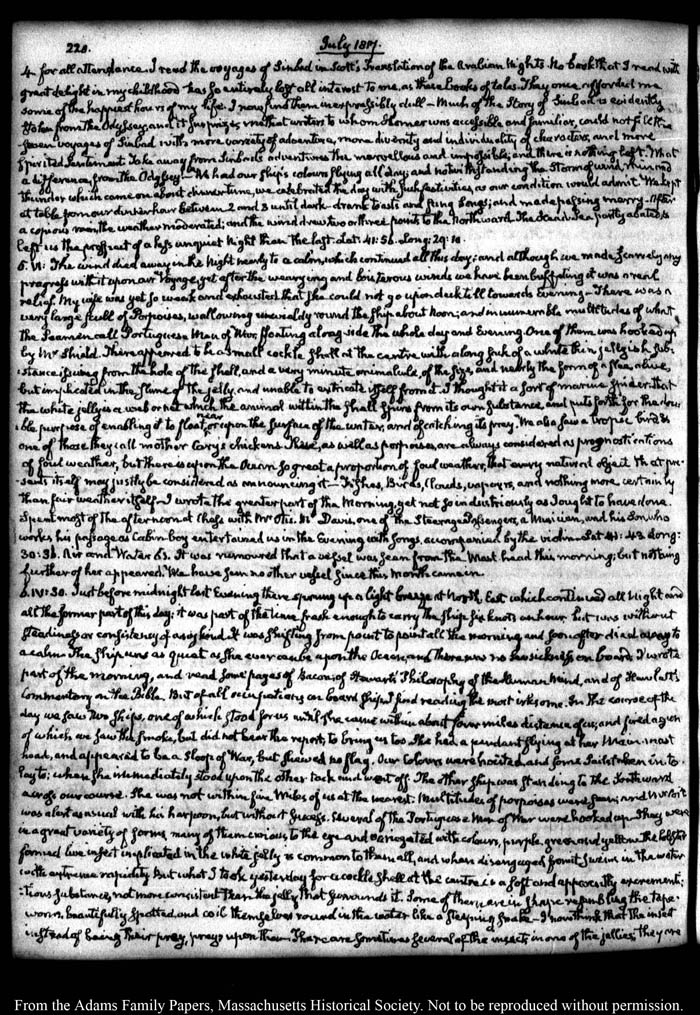 220.
July 1817.
4. for all attendance. I read the voyages of Sindbad in Scott's Translation of the Arabian Nights. No book that I read with
great delight in my childhood has so entirely lost all interest to me, as these books of tales. They once afforded me
some of the happiest hours of my life. I now find them inexpressibly dull — Much of the Story of Sindbad is evidently
taken from the Odyssey, and it surprizes me that writers to whom Homer was accessible and familiar, could not fill the
seven voyages of Sindbad with more variety of adventure, more diversity and individuality of characters, and more
spirited sentiment. Take away from Sindbad's adventures the marvellous and impossible, and there is nothing left. What
a difference from the Odyssey! — We had our ship's colours flying all day; and notwithstanding the Storm of wind, rain and
thunder which came on about dinner time, we celebrated the day with such festivities, as our condition would admit. We kept
at table from our dinner hour between 2 and 3 until dark — drank toasts and sung Songs; and made passing merry. After
a copious rain the weather moderated; and the wind drew two or three points to the Northward. The Head Sea partly abated &
left us the prospect of a less unquiet Night than the last. Lat: 41:56. Long: 29:10.
5. VI: The wind died away in the Night nearly to a calm, which continued all this day; and although we made scarcely any
progress with it upon our Voyage, yet after the wearying and boisterous winds we have been buffeting it was a real
relief. My wife was yet so weak and exhausted that she could not go upon deck till towards Evening — There was a
very large scull of Porpoises, wallowing unwieldily round the ship about Noon; and innumerable multitudes of what
the Seamen call Portuguese Men of War, floating along-side the whole day and Evening. One of them was hooked up
by Mr Shield. There appeared to be a small cockle shell at the centre with a long of a white thin jellyish sub:
:stance issuing from the hole of the shell, and a very minute animalcule, of the size, and nearly the form of a flea, alive,
but implicated in the slime of the jelly, and unable to extricate itself from it. I thought it a sort of marine spider, that
the white jelly is a web or net which the animal within the shell spins from its own substance, and puts forth for the dou:
:ble purpose of enabling it to float near or upon the surface of the water, and of catching its prey. We also saw a tropic bird &
one of those they call mother Cary's chickens. These, as well as porpoises, are always considered as prognostications
of foul weather, but there is upon the Ocean so great a proportion of foul weather, that every natural object that pre:
:sents itself may justly be considered as announcing it — Fishes, Birds, Clouds, vapours, and nothing more certainly
than fair weather itself — I wrote the greater part of the Morning, yet not so industriously as I ought to have done.
Spent most of the afternoon at Chess with Mr Otis. Mr Davis, one of the Steerage Passengers, a Musician, and his Son who
works his passage as Cabin boy entertained us in the Evening with Songs, accompanied by the violin. Lat 41:43. Long:
30:36. Air and Water 63. It was rumoured that a vessel was seen from the Mast head this morning; but nothing
further of her appeared. We have seen no other vessel since this month came in.
6. IV:30. Just before midnight last Evening there sprung up a light breeze at North, East which continued all Night and
all the former part of this day; it was part of the time fresh enough to carry the ship six knots an hour, but was without
steadiness or consistency of any kind. It was shifting from point to point all the morning, and soon after died away to
a calm. The ship was as quiet as she ever can be upon the Ocean, and there was no Sea sickness on board. I wrote
part of the morning, and read some pages of Bacon, of Stewart's Philosophy of the Human Mind, and of Hewlett's
Commentary on the Bible. But of all occupations on board ship I find reading the most irksome. In the course of the
day we saw two Ships, one of which stood for us until she came within about four miles distance of us; and fired a gun
of which we saw the smoke, but did not hear the report, to bring us too. She had a pendant flying at her Main-mast
head, and appeared to be a Sloop of War, but shewed no flag. Our Colours were hoisted, and some Sails taken in to
lay to; when she immediately stood upon the other tack and went off. The other ship was standing to the Southward
across our course. She was not within five Miles of us at the nearest. Multitudes of porpoises were seen; and
was alert as usual with his harpoon, but without success. Several of the Portuguese Men of War were hooked up. They were
in a great variety of forms, many of them curious to the eye and variegated with colours, purple, green and yellow. The
formed live insect implicated in the white jelly is common to them all, and when disengaged from it swims in the water
with extreme rapidity. But what I took yesterday for a cockle shell at the centre is a soft and apparently excrement:
:tious substance, not more consistent than the jelly that surrounds it. Some of them are in shape resembling the tape-
worm, beautifully spotted and coil themselves round in the water like a sleeping snake — I now think that the insect
instead of being their prey, preys upon them. There are sometimes several of the insects in one of the jellies; they are
From the Adams Family Papers, Massachusetts Historical Society. Not to be reproduced without permission.